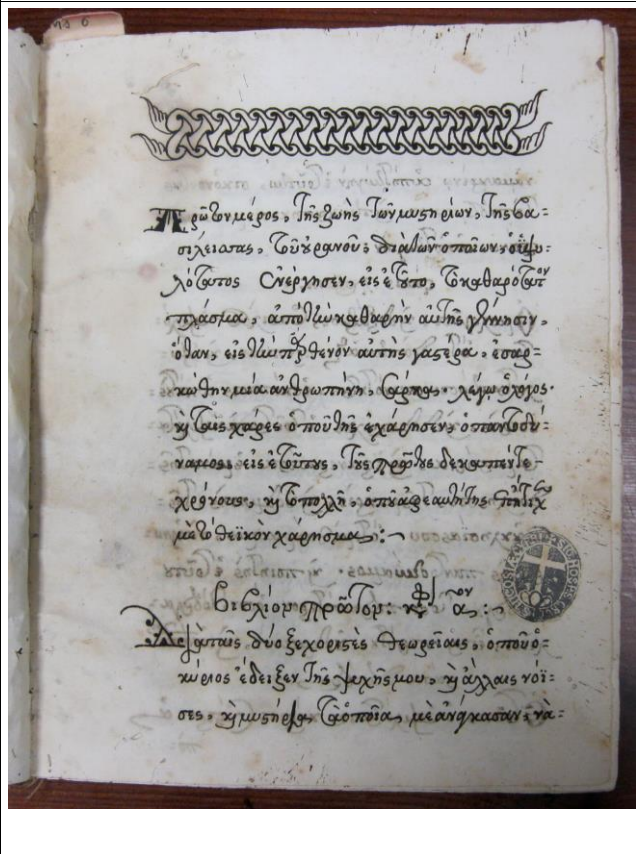 Πρῶτον μέρος, τῆς ζωῆς τῶν μυστηρίων, τῆς βα=
σιλείας τας, τοῦ οὐρανοῦ: διὰ τῶν ὁποίων, ὁ ὑψη=
λότατος ἐνέργησεν, εἰς ἐτοῦτο, τὸ καθαρότατον
πλάσμα, ἀπὸ τὴν καθαρὴν αὐτῆς γέννησιν,
ὅταν, εἰς τὴν παρθένον αὐτῆς γαστέρα, ἐσαρ=
κώθην μία ἀνθρωπήνη, σάρκα, λέγω ὁ λόγος.
καὶ ταῖς χάρες ὁποῦ τῆς ἐχάρησεν, ὁ παντοδύ=
ναμος, εἰς ἐτούτους, τοὺς πρώτους δεκαπέντε
χρόνους, καὶ τὸ πολλὴ, ὁποῦ
μὲ τὸ θεϊκὸν χάρησμα:
βιβλίον πρῶτον: κεφ αον:
Διὰ ταῖς δύο ξεχοριστὲς θεωρείαις, ὁποῦ ὁ=
κύριος ἔδειξεν τῆς ψυχῆς μου, καὶ ἄλλαις νόϊ=
σες, καὶ μυστήρια, τὰ ὁποῖα, μὲ ἀνάγκασαν, νὰ=